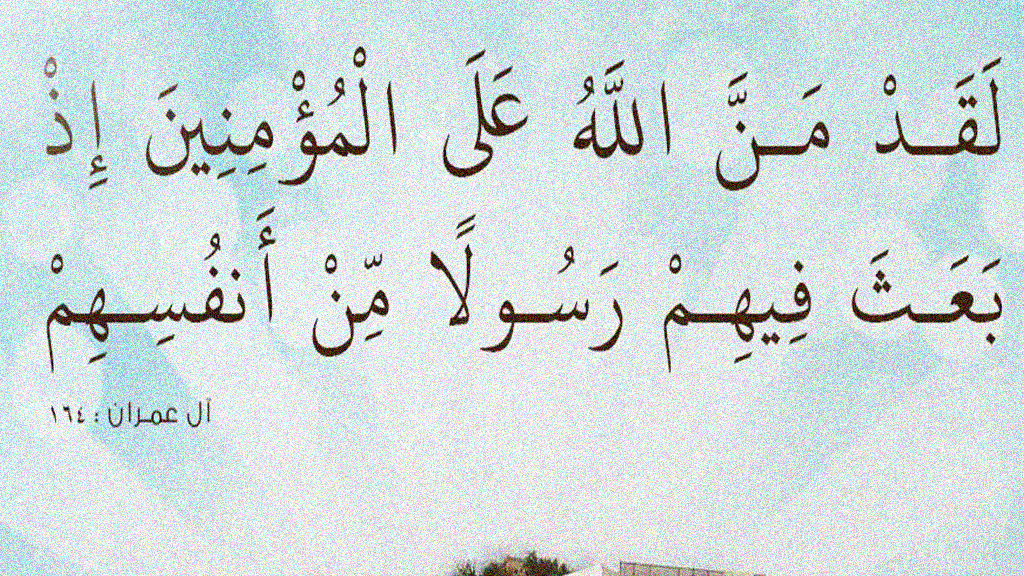 لَقَدْ مَـنَّ اللَّهُ عَلَى الْمُؤْمِنِينَ إِذْ
بَعَـثَ فِيهِـمْ رَسُـولًا مِّنْ أَنفُسِـهِمْ
آل عمران : ١٦٤